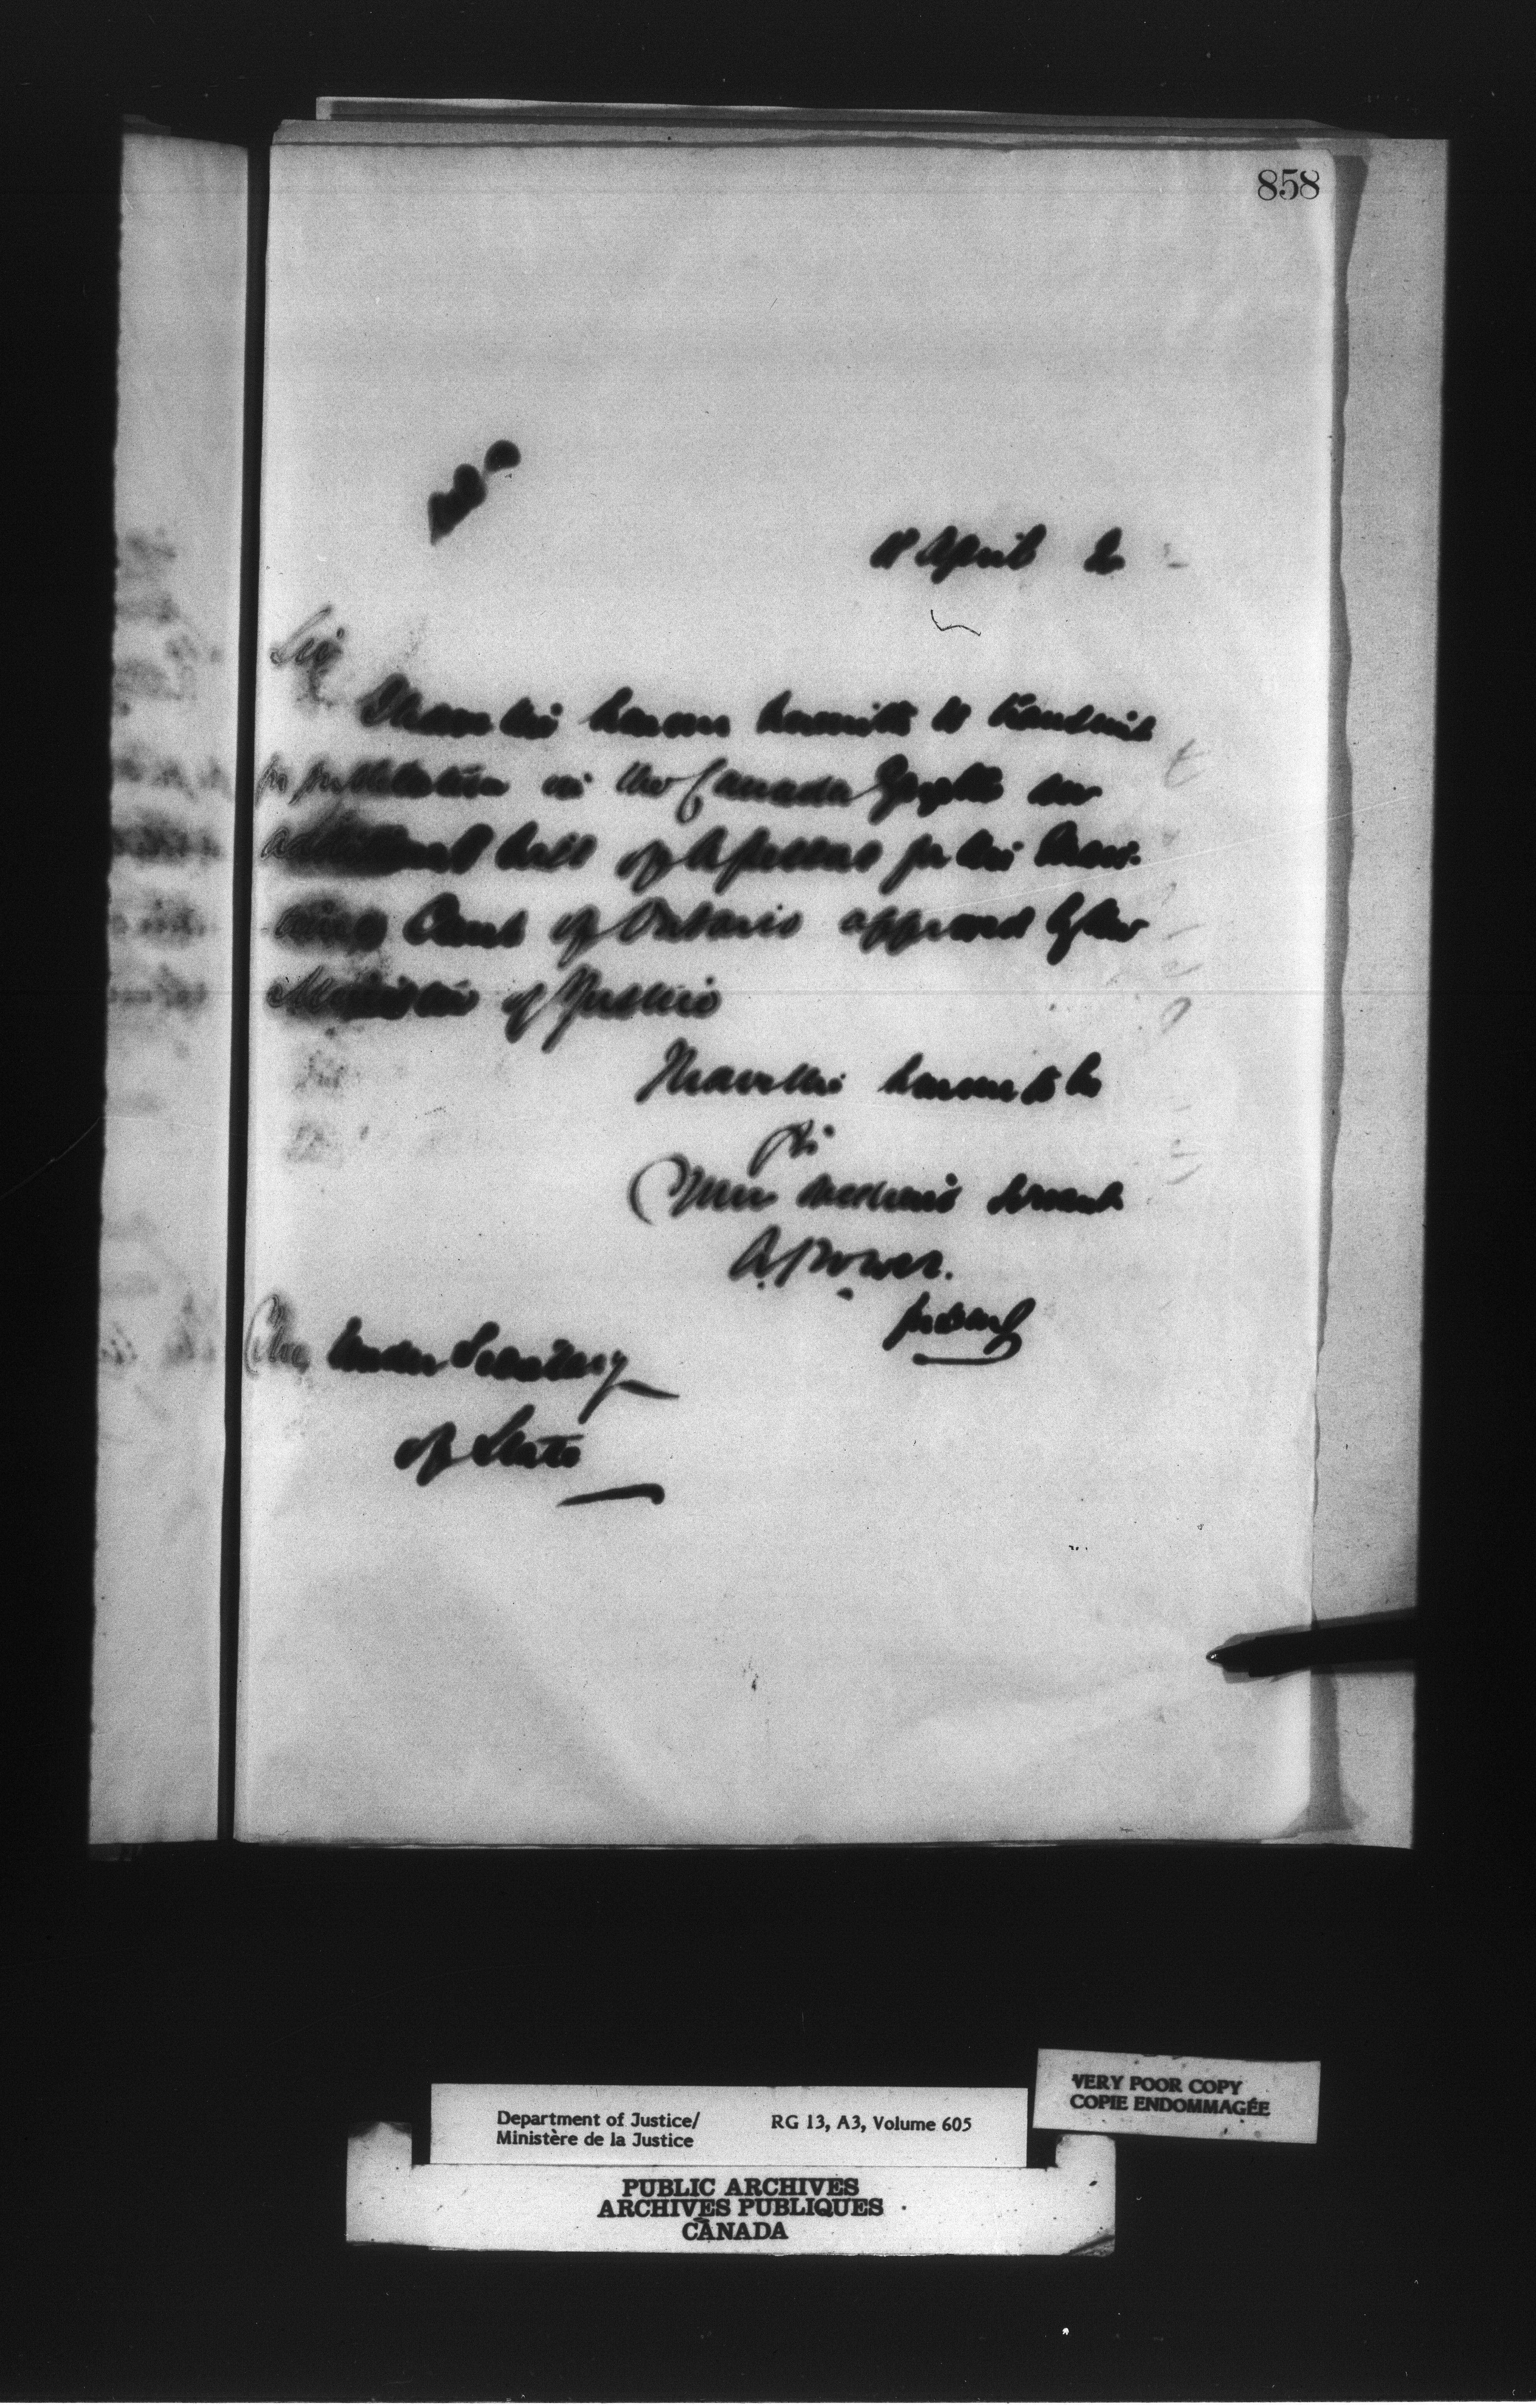 858
18 April 2
Sir
I have the honour herewith to transmit
for publication in the Canada Gazette an
additional half of for the
Court of Ontario approved by the
Minister of Justice
I have the honour to be
Sir
Your obedient servant
A. Power.
for D.M.J.
The Under Secretary
of State
Department of Justice/ RG 13, A3, Volume 605
Ministère de la Justice
VERY POOR COPY
COPIE ENDOMMAGÉE
PUBLIC ARCHIVES
ARCHIVES PUBLIQUES
CANADA